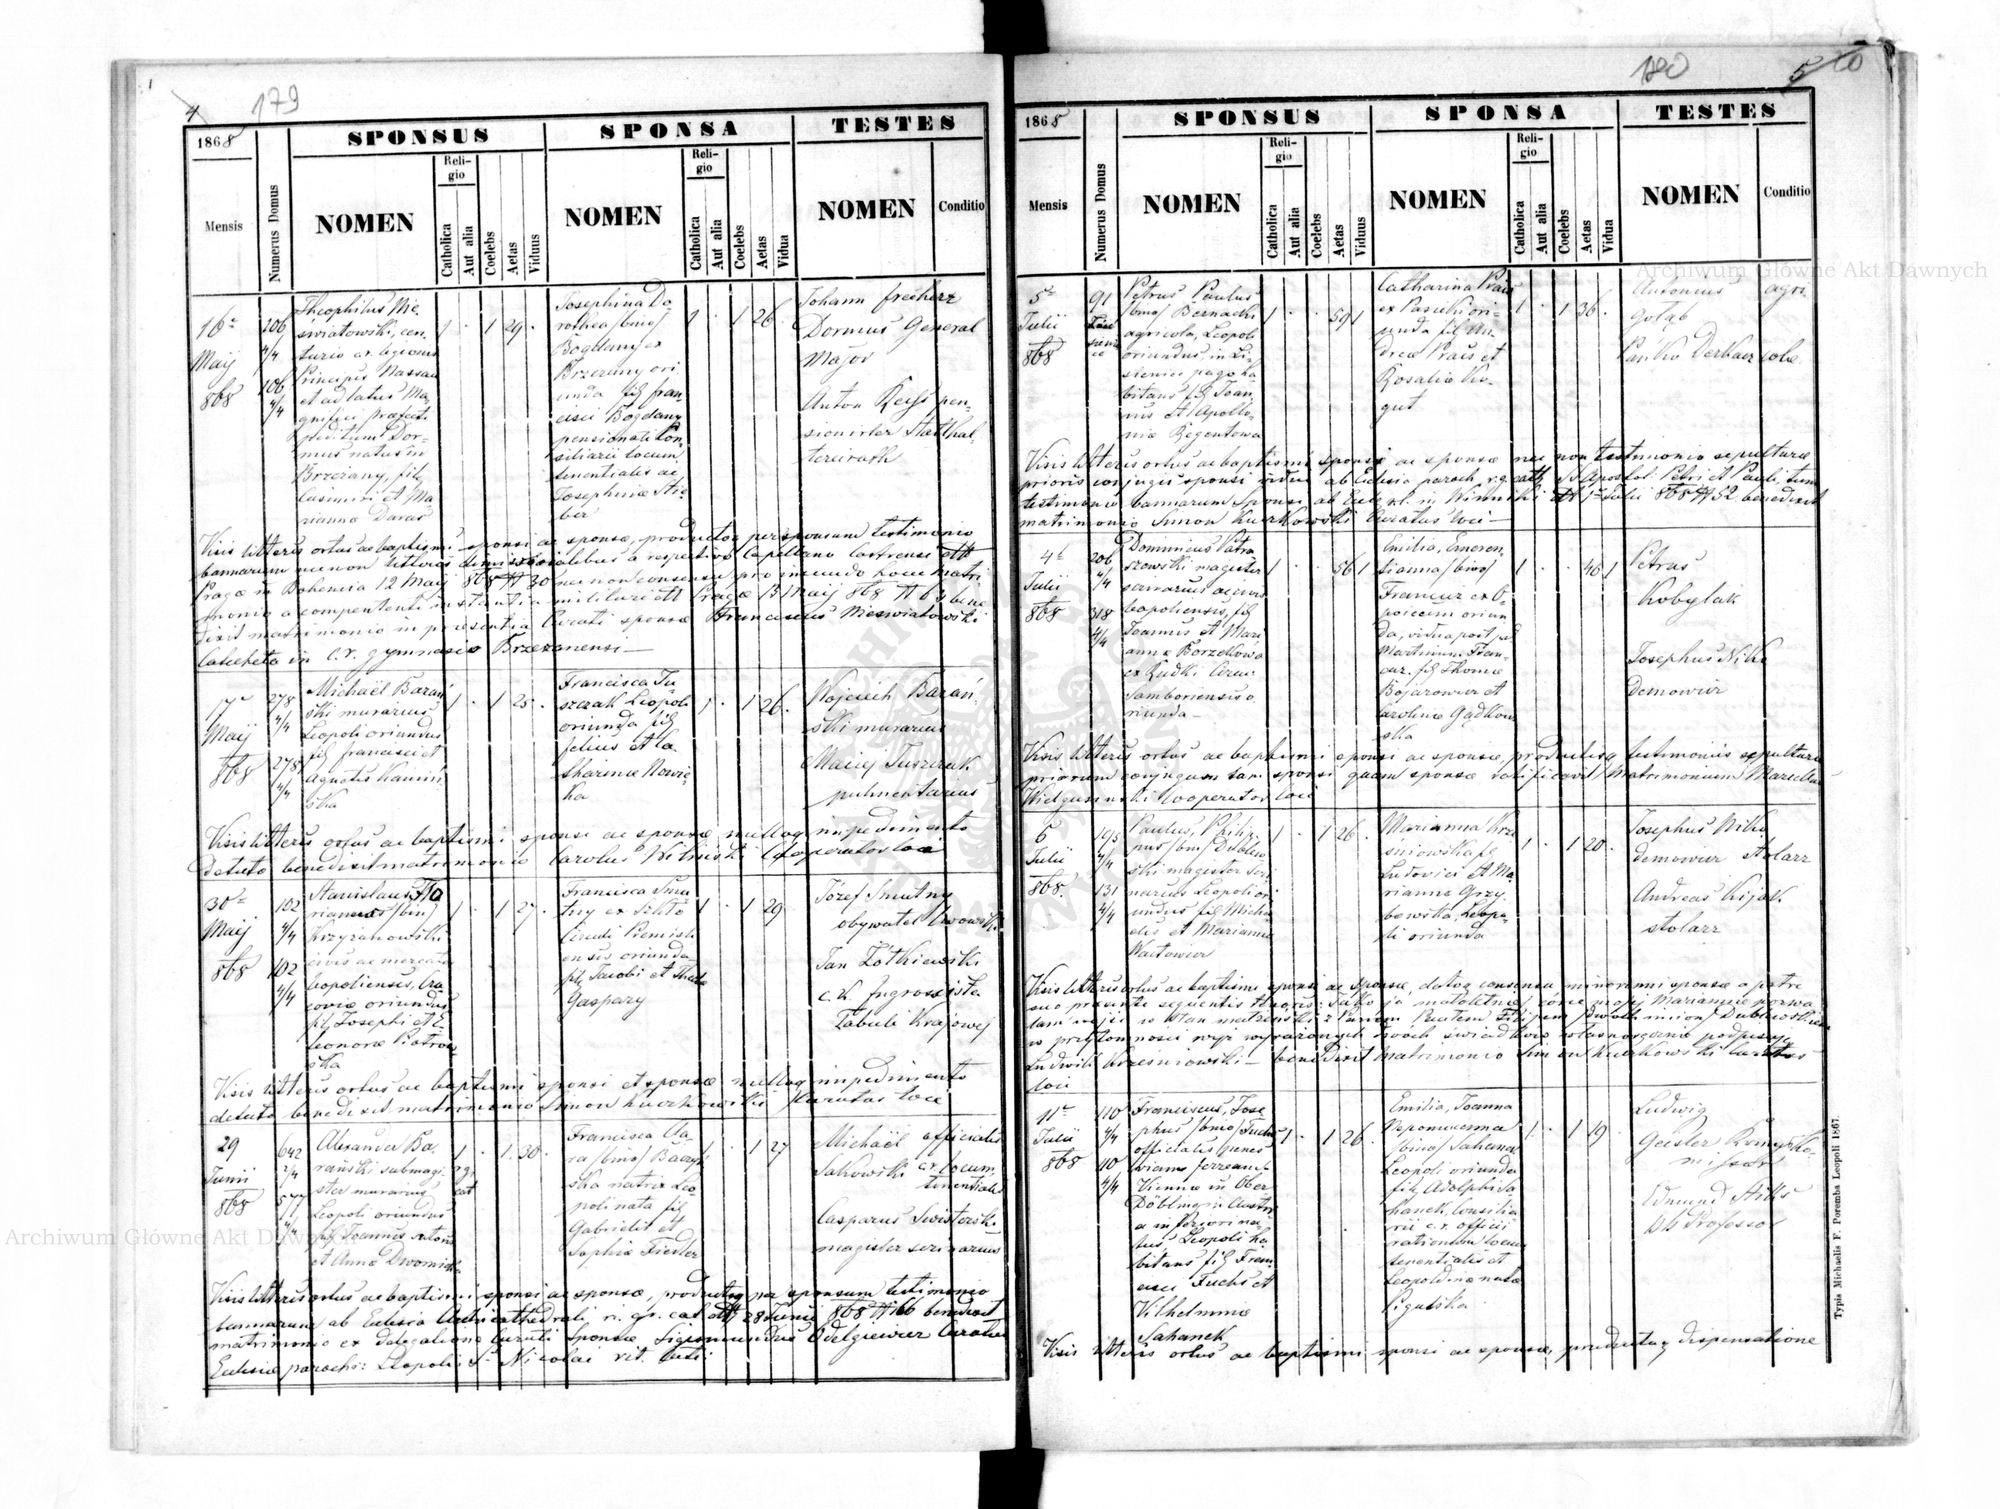 4
179
1868
SPONSUS
SPONSA
TESTES
Mensis
Numerus Domus
NOMEN
Religio
Catholica
Aut alia
Coelebs
Aetas
Viduus
NOMEN
Religio
Catholica
Aut alia
Coelebs
Aetas
Vidua
NOMEN
Conditio
16
Maij
868
206
4/4
106
4/4
Theophilus Nie-
światowski, cen-
turio c.r. legionis
Principis Nassau
et ad latus Ma-
gnifici
Dor-
mus natus in
Brzezany, fil.
Casimiri et Ma-
rianna Daras
1 . 1 29 .
Josephina Do-
rothea /bino/
Bogdany ex
Brzezany ori-
unda fil. fran-
cisci Bogdany
pensionati Con-
siliarii locum
tenentialis ac
Josephinæ Stie-
ber
1 . 1 26 .
Johann freiherr
Dormus General
Major
Anton Reiss pen-
sionirter Statthal-
tereirath
Visis litteris ortus ac baptismi sponsi ac sponsæ, productoq per sponsum testimonio
bannorum nec non litteris dimissorialibus a respectivo Capellano castrensi dtto
Pragæ in Bohemia 12 Maij 868 N 30 nec non consensu pro ineundo hocce matri-
monio a competenti instantia militari dtt Pragæ 13 Maij 868 N 63 bene-
dixit matrimonio in præsentia Curati sponsæ Franciscus Nieswiatowski
Catecheta in C.r. gymnasio Brzezanensi
17
Maij
868
278
4/4
278
4/4
Michaël Barań-
ski murarius
Leopoli oriundus
fil. francisci et
Agnetis Kamiń-
ska
1 . 1 25 .
Francisca Tu-
szczak Leopoli
oriunda fil.
felicis et Ca-
tharinæ Nowic-
ka
1 . 1 26 .
Wojciech Barań-
ski murarius
Maciej Tuszczak
pulmentarius
Visis litteris ortus ac baptismi sponsi ac sponsæ nulloq impedimento
detecto benedixit matrimonio Carolus Wiliński Cooperator loci
30
Maij
868
102
4/4
102
4/4
Stanislaus Ma-
rianus /bin/
Krzyżanowski
civis ac mercator
Leopoliensis, Cra-
coviæ oriundus
fil. Josephi et E-
leonoræ Piotrow-
ska
1 . 1 27 .
Francisca Smu-
tny ex Szkło
Circuli Premisli-
ensis oriunda
fil. Jacobi et Theclæ
Gaspary
1 . 1 29 .
Józef Smutny
obywatel lwowski
Jan Żółkiewski
c.k. Ingrossista
Tabuli Krajowej
Visis litteris ortus ac baptismi sponsi et sponsæ nulloq impedimento
detecto benedixit matrimonio Simon Kuczkowski Curatus loci
29
Junii
868
642
2/4
577
4/4
Alexander Ba-
rański submagi-
ster murarius
Leopoli oriundus
fil. Joannis
et Anna Dwornicka
1 . 1 30 .
r.g.
cat
Francisca Cla-
ra /bino/ Baczyń-
ska natrix Leo-
poli nata fil.
Gabrielis et
Sophiæ Fiedler
1 . 1 27
Michaël officialis
Sakowski c.r. locum-
tenentialis
Casparus Swisterski
magister scriniarius
Visis litteris ortus ac baptismi sponsi ac sponsæ, productoq per sponsum testimonio
bannorum ab Eclesia Archicathedrali r. gr. cat dtt 28 Junii 868 N 166 benedixit
matrimonio ex delegatione Curati Sponsæ Sigismundus Odelgiewicz Curatus
Eclesiæ paroch: Leopolis S. Nicolai rit. lati:
180
5
1868
SPONSUS
SPONSA
TESTES
Mensis
Numerus Domus
NOMEN
Religio
Catholica
Aut alia
Coelebs
Aetas
Viduus
NOMEN
Religio
Catholica
Aut alia
Coelebs
Aetas
Vidua
NOMEN
Conditio
5
Julii
868
91
Petrus Paulus
/bino/ Bernacki
agricola, Leopoli
oriundus, in Li-
sienice pago ha-
bitans fil. Joan-
nis et Apollo-
niæ Regentowa
1 . . 59 1
Catharina Prais
ex Pasieki ori-
unda fil. An-
dreæ Prais et
Rosaliæ Ko-
gut
1 . 1 36 .
Antonius agri-
Gołąb
Pańko Derkacz colæ
Visis litteris ortus ac baptismi sponsi ac sponsæ nec non testimonio sepulturæ
prioris conjugis sponsi vidui ab Eclesia paroch. r.g. cath. SS Apostol: Petri et Pauli, tum
testimonio bannorum Sponsi ab Ecl. r.l. in Winniki dtt 1 Julii 868 N 52 benedixit
matrimonio Simon Kuczkowski Curatus loci
4
Julii
868
206
4/4
318
4/4
Dominicus Patra-
szowski magister
serrarius ac civis
Leopoliensis, fil.
Joannis et Mari-
annæ Borzetkowa
ex Rudki Circu-
Samboriensis o-
riunda
1 . . 56 1
Emilia, Emeren-
tianna /bino/
Francuz ex O-
poiccem oriun-
da, vidua post
Martinum Fran-
cuz. fil. Thomæ
Bojarowicz et
Carolinæ Gądkow-
ska
1 . . 46 1
Petrus
Kobylak
Josephus Niko
demowicz
Visis litteris ortus ac baptismi sponsi ac sponsæ, productisq testimoniis sepulturæ
priorum conjugum tam sponsi quam sponsæ ratificavit Matrimonium Marcellus
Wielguszewski Cooperator loci
6
Julii
868
195
4/4
131
4/4
Paulus, Philip-
pus /bin/ Dublew-
ski magister scri-
narius Leopoli ori-
undus fil. Micha-
elis et Marianna
Wartowicz
1 . 1 26 .
Marianna Krze-
sniowska fil.
Ludovici et Ma-
riannæ Grzy-
bowska, Leopo-
li oriunda
1 . 1 20 .
Josephus Niko
demowicz stolarz
Andreas Kijak
stolarz
Visis litteris ortus ac baptismi sponsi ac sponsæ, datoq consensu minorenni sponsæ a patre
suo præsente sequentis tenoris: Jako ja małoletniej córce mojej Mariannie pozwa-
lam wejść w stan małżeński z Panem Pawłem Filipem /dwoch imion/ Dublewskim
w przytomności wyż wyrażonych dwóch świadków własnoręcznie podpisuję
Ludwik Krześniowski – benedixit Matrimonio Simon Kuczkowski Curatus
loci
11
Julii
868
110
4/4
110
4/4
Franciscus, Jose-
phus /bino/ Fuchs
officialis penes
viam ferream
Viennæ in Ober
Döbling in Austri-
a inferiori na-
tus Leopoli ha-
bitans fil. Fran-
cisci Fuchs et
Vilhelminæ
Sahanek
1 . 1 26 .
Emilia, Joanna
Nepomucena
/bino/ Sahanek
Leopoli oriunda
fil. Adolphi Sa-
hanek, Consilia-
rii c.r. officii
rationum locum
tenentialis et
Leopoldinæ natæ
Pigulska
1 . 1 19 .
Ludwig
Geisler
Edmund Hilss
kk Professor
Visis litteris ortus ac baptismi sponsi ac sponsæ, productaq dispensatione
Typis Michaelis F. Poremba Leopoli 1867.
Archiwum Główne Akt Dawnych
Archiwum Główne Akt Dawnych